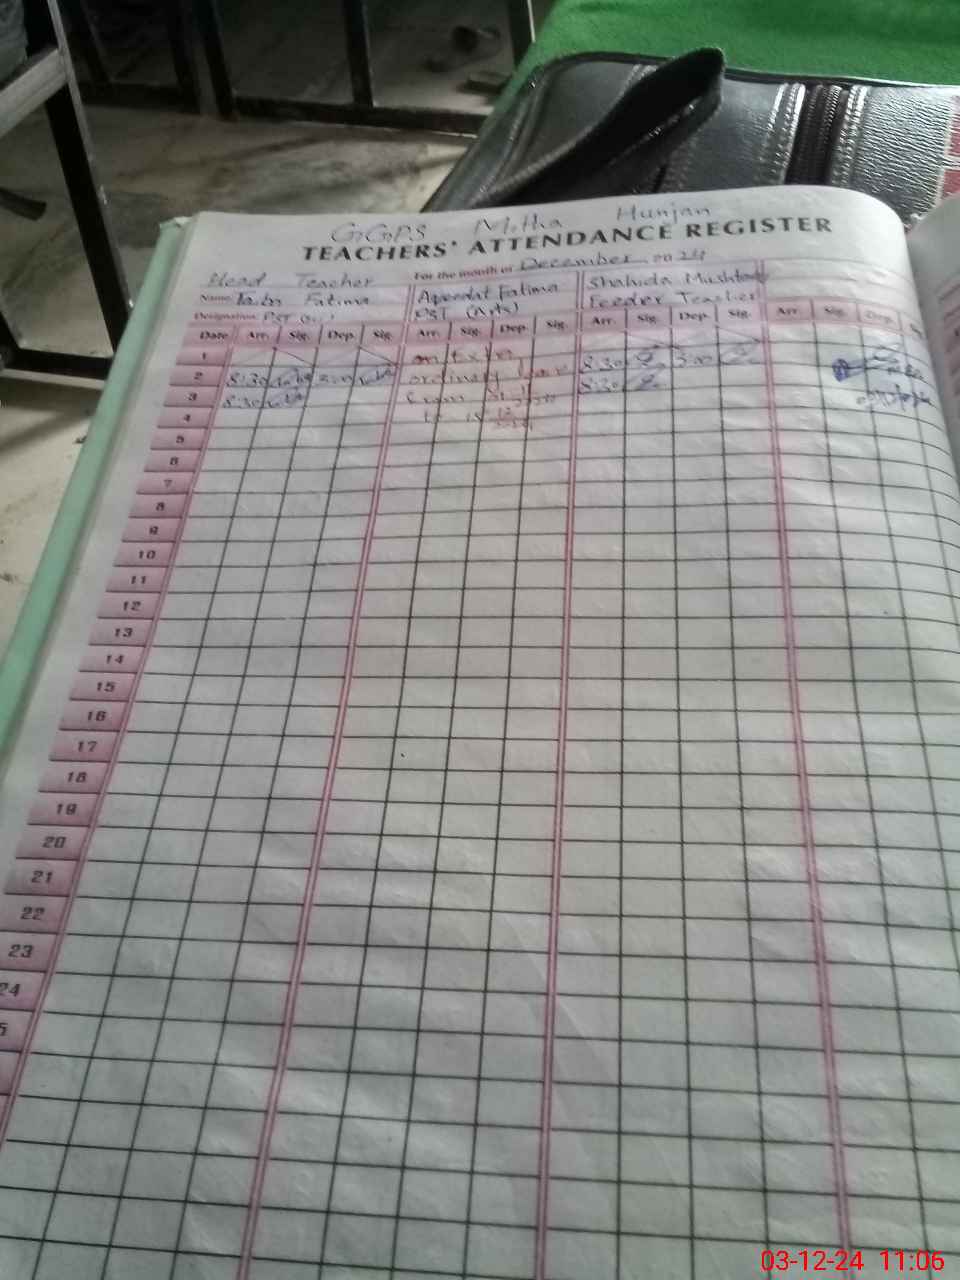 GGPS Mitha Hunjan
TEACHERS' ATTENDANCE REGISTER
For the month of December 2024
Head Teacher
Name Fatima
Designation PST
Fatima
PST (Arts)
Shahida Mushtaq
Feeder Teacher
Date Arr. Sig. Dep. Sig. Arr. Sig. Dep. Sig. Arr. Sig. Dep. Sig. Arr. Sig. Dep.
1 on
2 8:30 3:00 ordinary leave 8:30 3:00
3 8:30 from 8:30
4 to
5
6
7
8
9
10
11
12
13
14
15
16
17
18
19
20
21
22
23
24
5
03-12-24 11:06